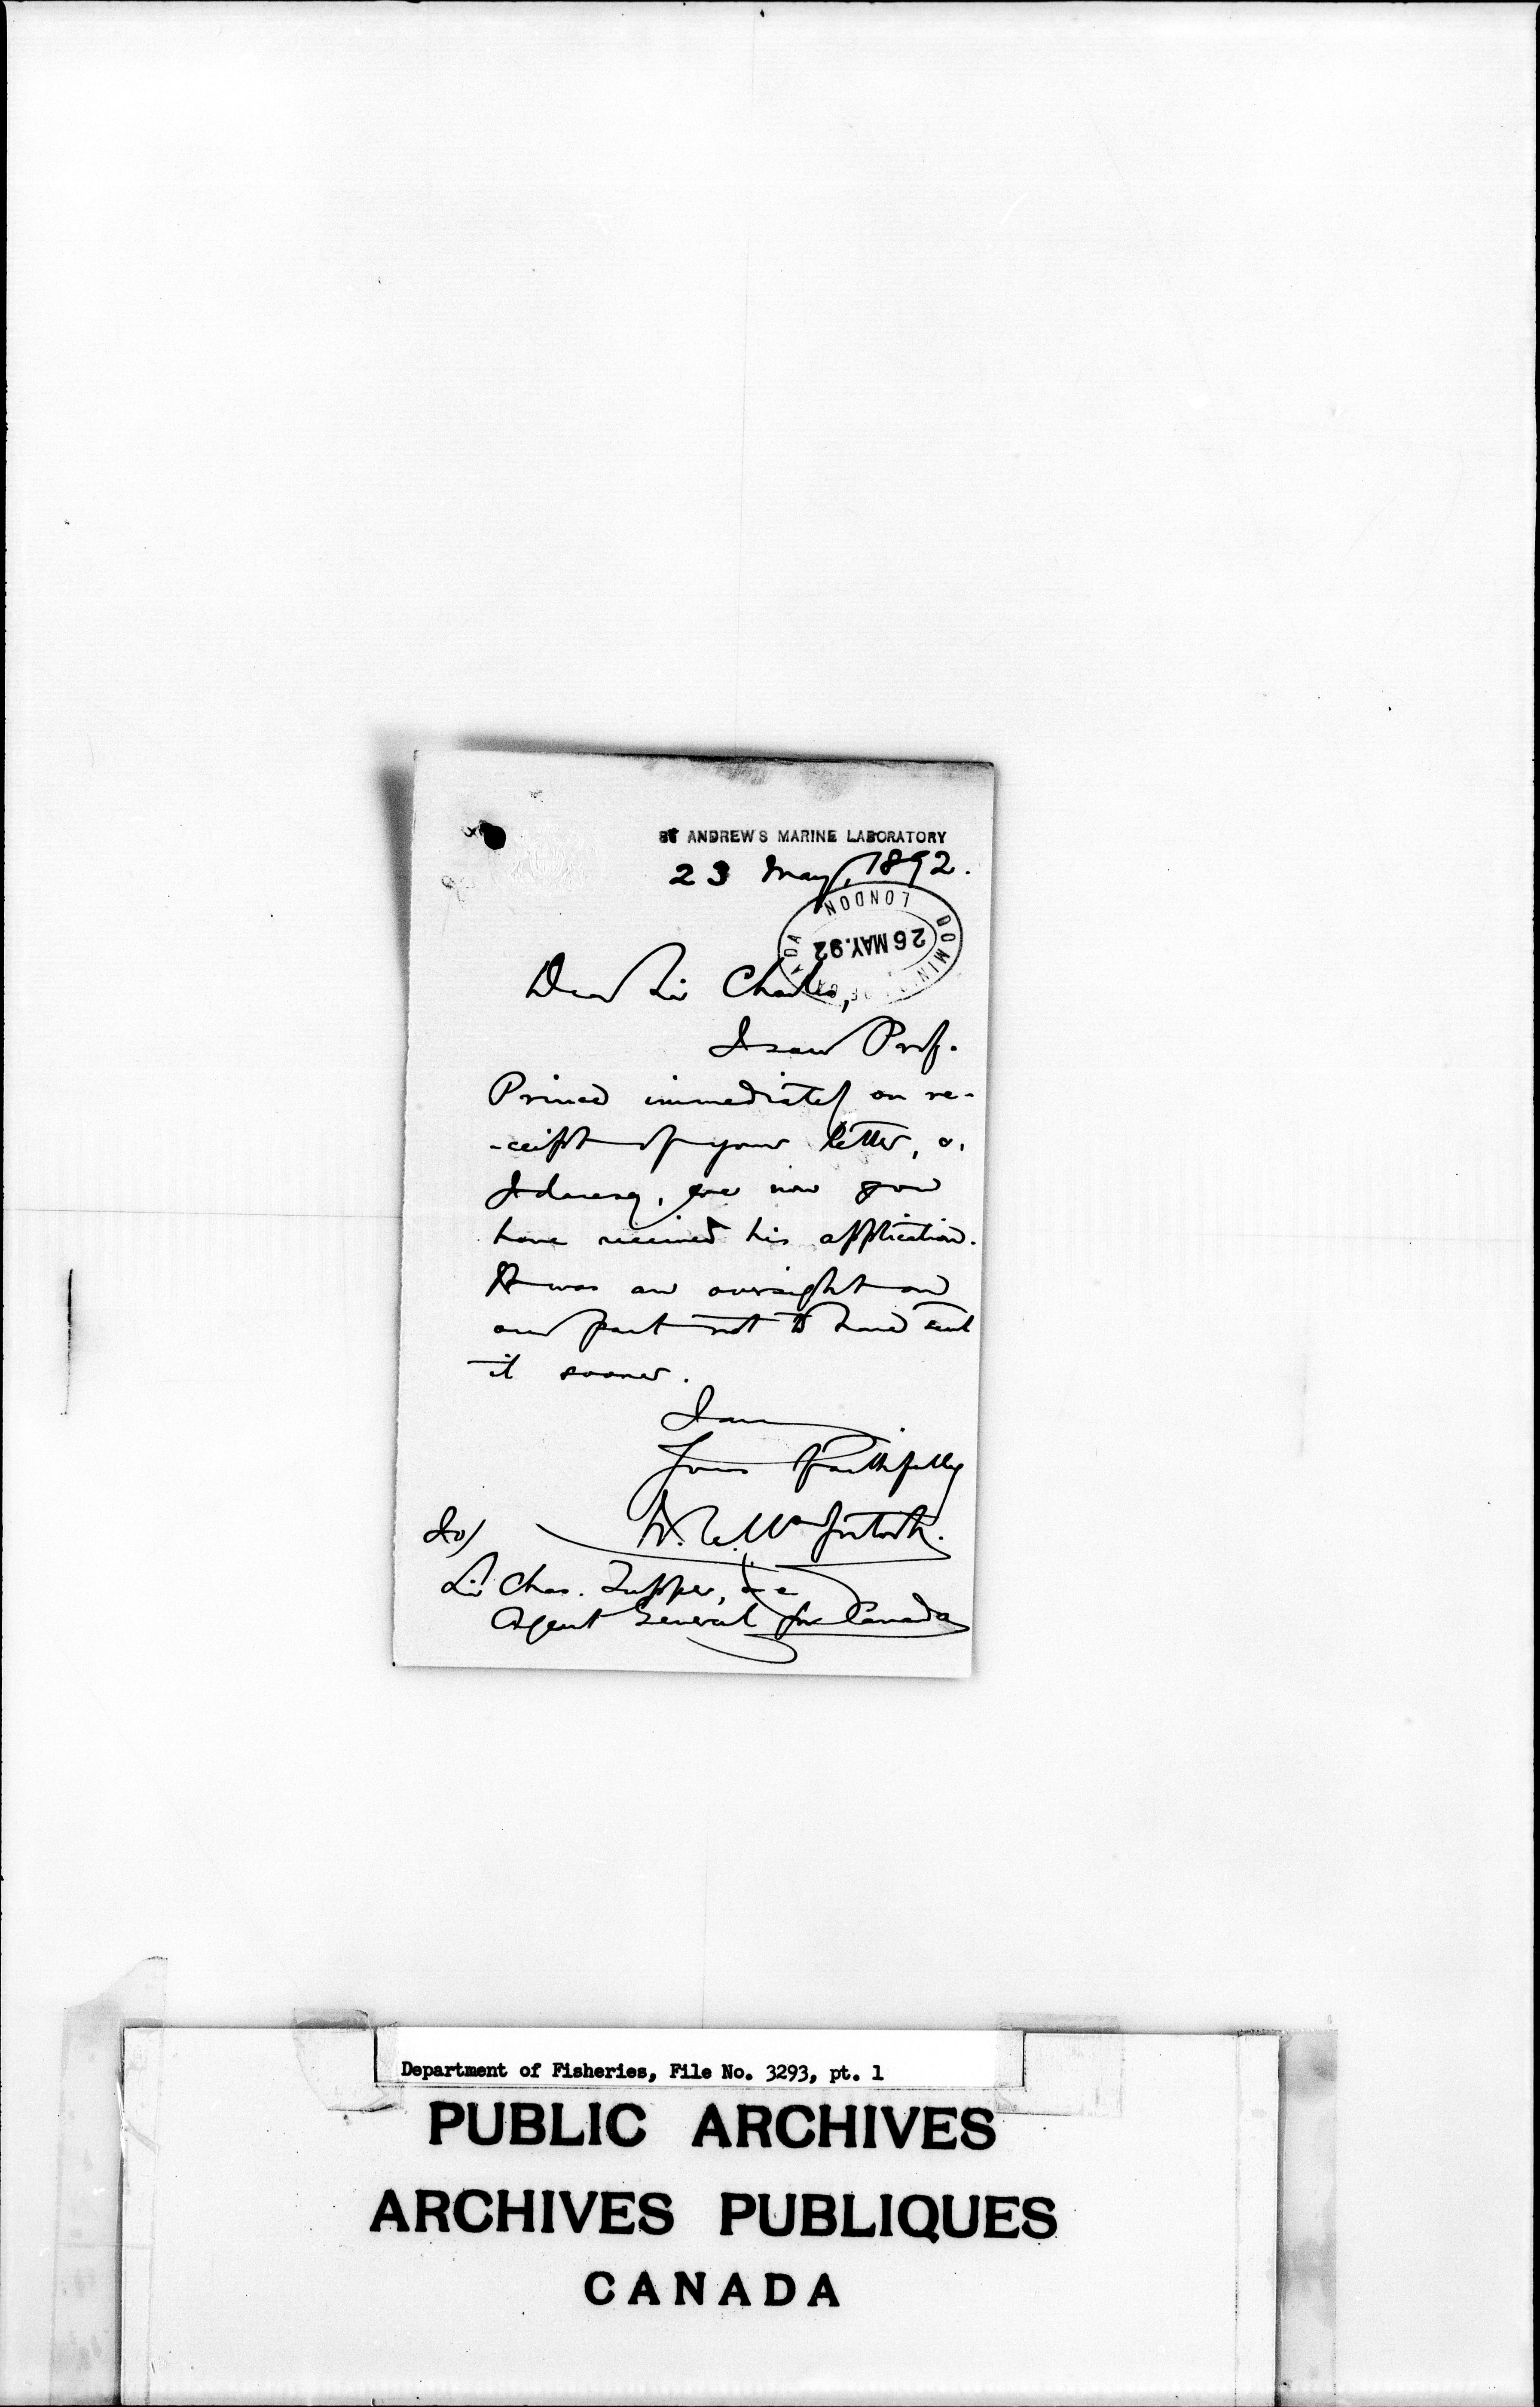 ST ANDREWS MARINE LABORATORY
23 May, 1892.
DOMINION OF CANADA
LONDON
26 MAY. 92
Dear Sir Charles,
I saw Prof.
Prince immediately on re-
-ceipt of your letter, &,
I daresay, ere now you
have received his application.
It was an oversight on
our part not to have sent
it sooner.
I am
Yours faithfully
W. C. McIntosh.
To/
Sir Chas. Tupper, &c
Agent General for Canada
Department of Fisheries, File No. 3293, pt. 1
PUBLIC ARCHIVES
ARCHIVES PUBLIQUES
CANADA